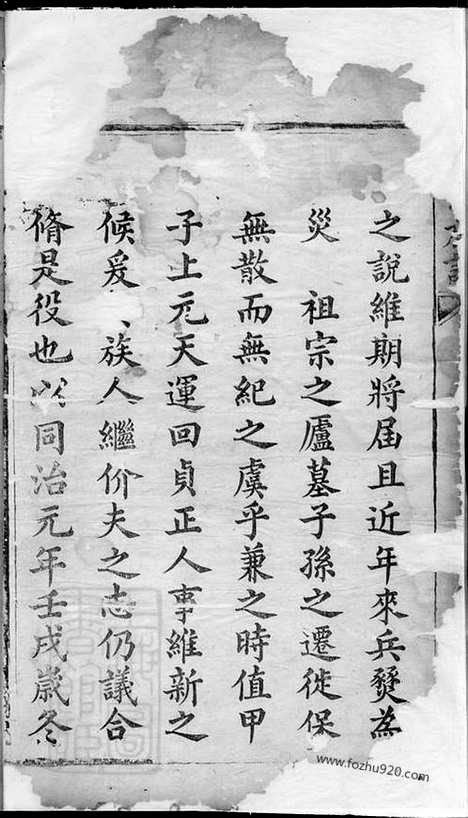 之說維期將屆且近年來兵燹為
災　祖宗之廬墓子孫之遷徙保
無散而無紀之虞乎兼之時值甲
子上元天運回貞正人事維新之
候爰　族人繼价夫之志仍議合
脩是役也以同治元年壬戌歲冬
www.fozhu920.com